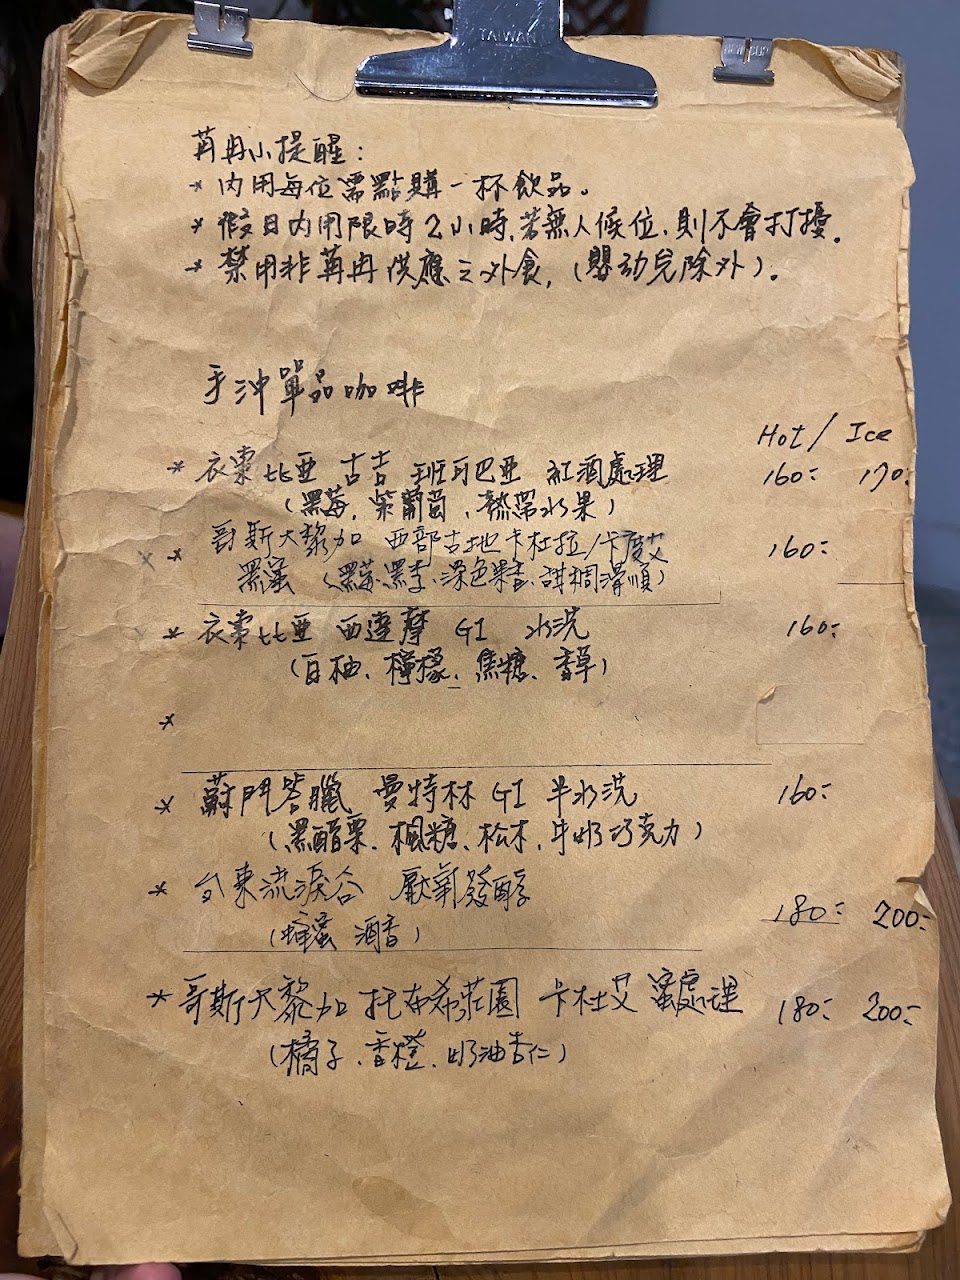 TAIWAN
苒冉小提醒：
* 內用每位需點購一杯飲品。
* 假日內用限時2小時，若無人候位，則不會打擾。
* 禁用非苒冉供應之外食，(嬰幼兒除外)。
手沖單品咖啡
Hot / Ice
* 衣索比亞 古吉 班可巴亞 紅酒處理 160: 170:
(黑莓、紫葡萄、熱帶水果)
* 哥斯大黎加 西部古地卡杜拉/卡度艾 160:
黑蜜 (黑莓、黑李、深色果香、甜稠滑順)
* 衣索比亞 西達摩 G1 水洗 160:
(白柚、檸檬、焦糖、香草)
*
* 蘇門答臘 曼特林 G1 半水洗 160:
(黑醋栗、楓糖、松木、牛奶巧克力)
* 台東流淚谷 厭氧發酵 180: 200:
(蜂蜜 酒香)
* 哥斯大黎加 托布希莊園 卡杜艾 蜜處理 180: 200:
(橘子、香橙、奶油杏仁)